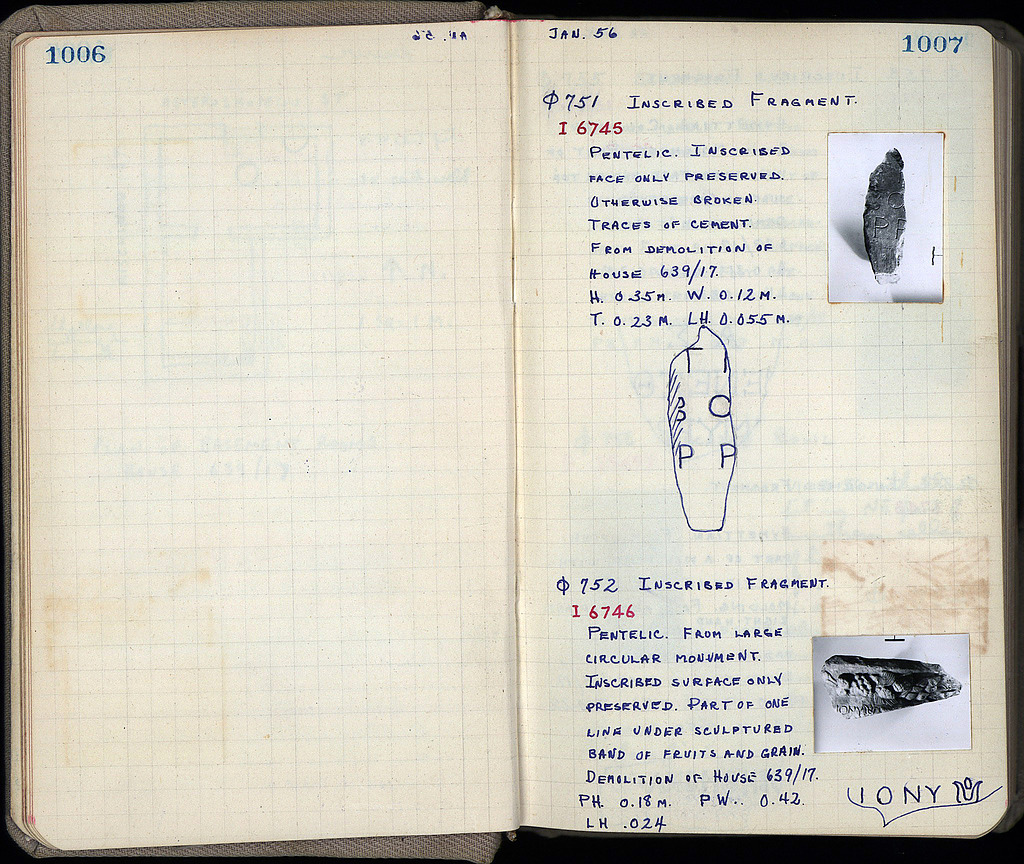 1006
JAN. 56
1007
Φ 751 INSCRIBED FRAGMENT.
I 6745
PENTELIC. INSCRIBED
FACE ONLY PRESERVED.
OTHERWISE BROKEN.
TRACES OF CEMENT.
FROM DEMOLITION OF
HOUSE 639/17.
H. 0.35M. W. 0.12M.
T. 0.23 M. LH. 0.055M.
Γ Ι
Β Ο
Ρ Ρ
Φ 752 INSCRIBED FRAGMENT.
I 6746
PENTELIC. FROM LARGE
CIRCULAR MONUMENT.
INSCRIBED SURFACE ONLY
PRESERVED. PART OF ONE
LINE UNDER SCULPTURED
BAND OF FRUITS AND GRAIN.
DEMOLITION OF HOUSE 639/17.
PH. 0.18M. PW.. 0.42.
LH .024